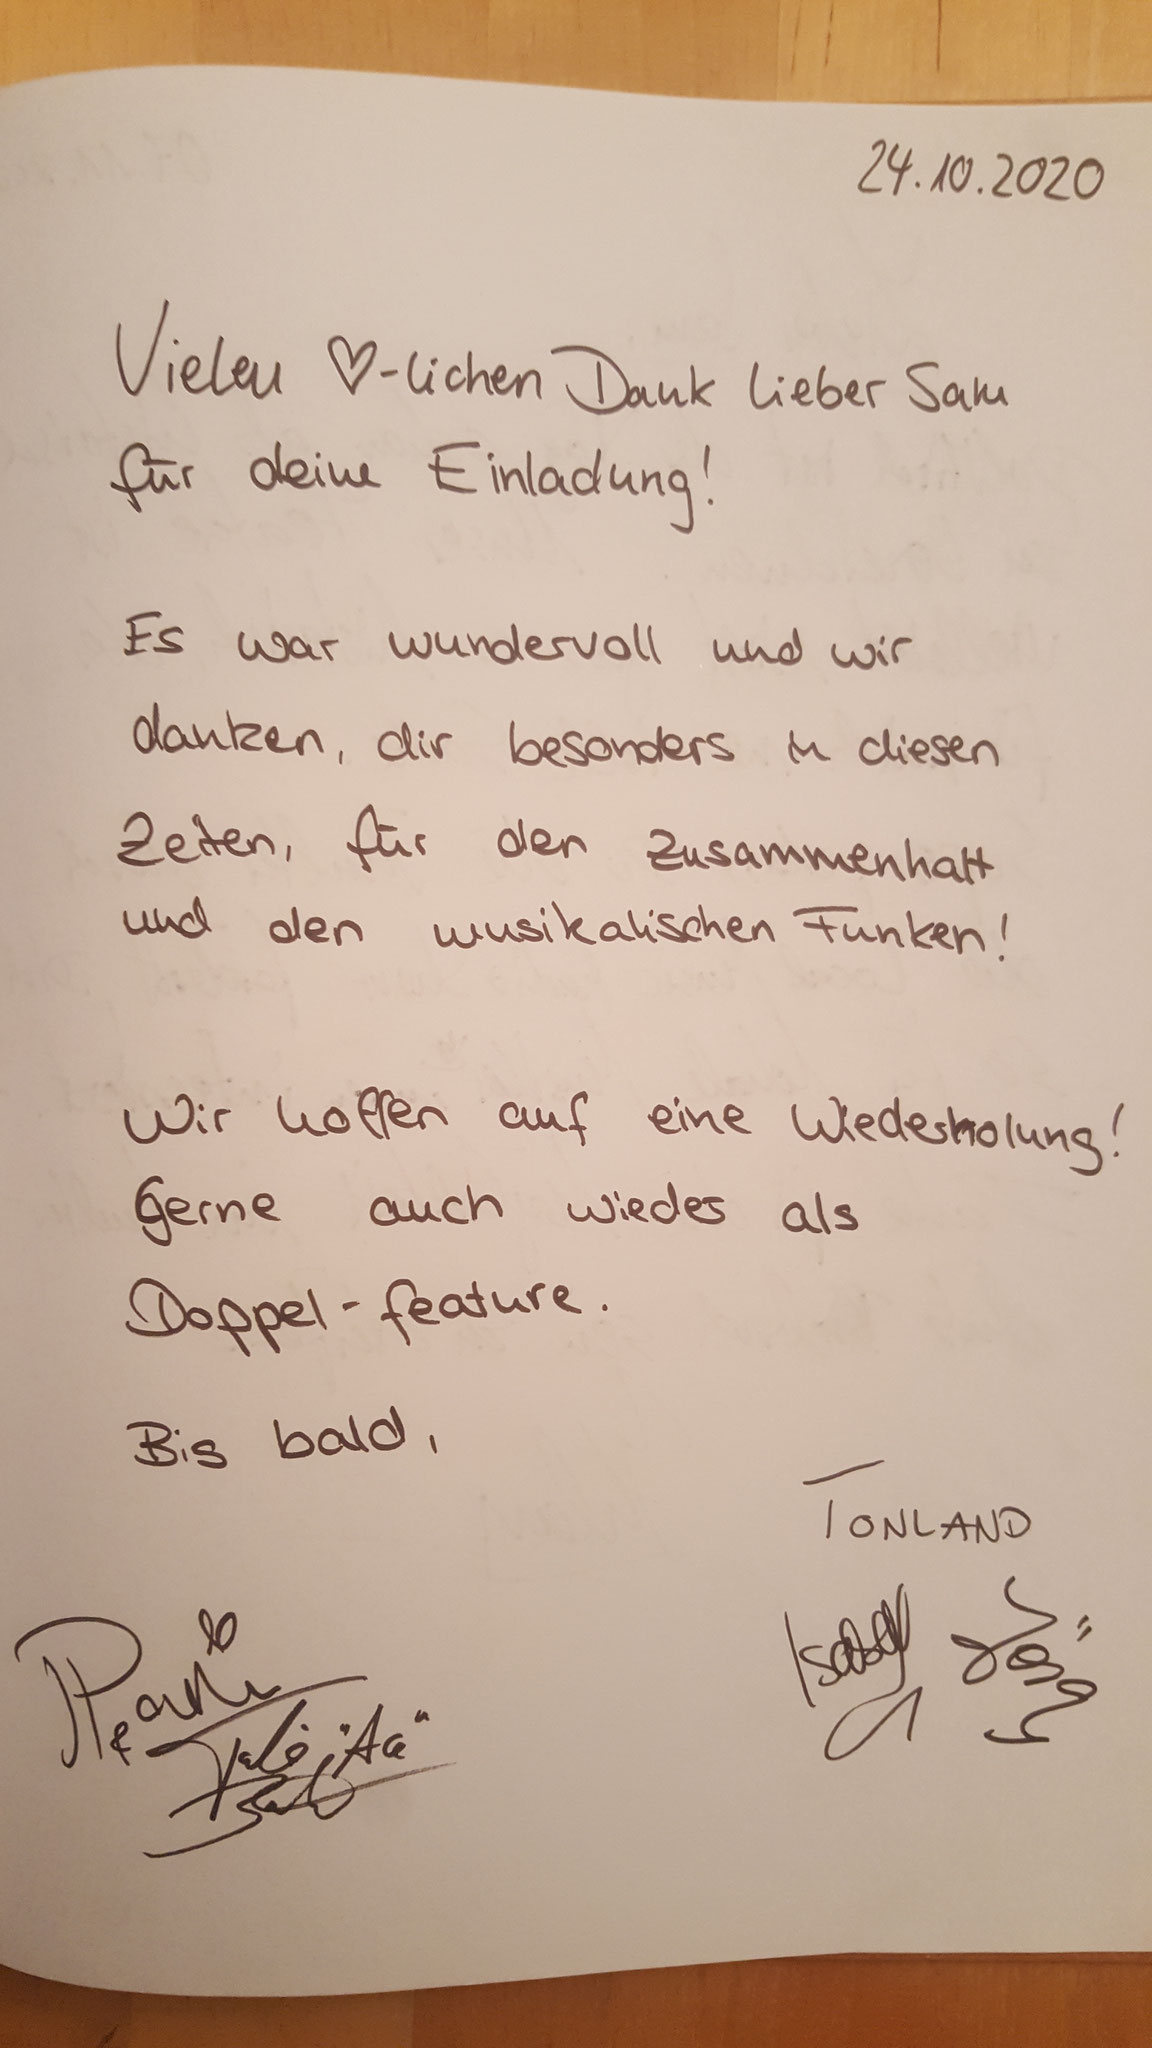 24.10.2020
Vielen ♡-lichen Dank lieber Sam
für deine Einladung!
Es war wundervoll und wir
danken, dir besonders in diesen
Zeiten, für den Zusammenhalt
und den musikalischen Funken!
Wir hoffen auf eine Wiederholung!
Gerne auch wieder als
Doppel-feature.
Bis bald,
TONLAND